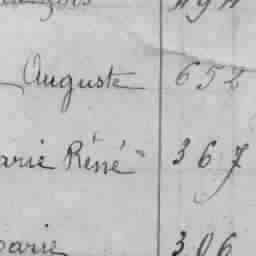 Auguste 652
arie Réné 367
arie 306